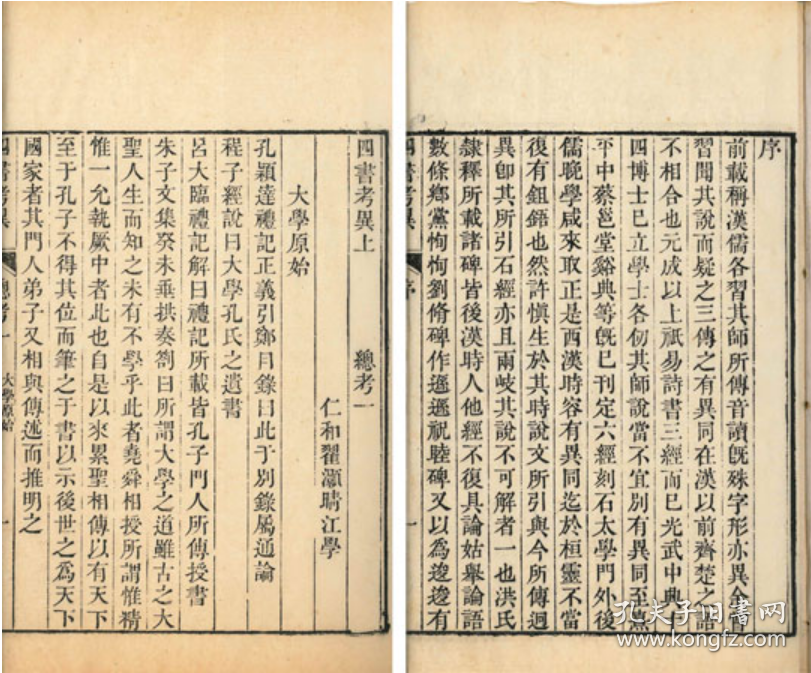 序
前載稱漢儒各習其師所傳音讀旣殊字形亦異余
習聞其說而疑之三傳之有異同在漢以前齊楚之語
不相合也元成以上祇易詩書三經而已光武中興十
四博士已立學士各仞其師說當不宜別有異同至熹
平中蔡邕堂谿典等旣已刊定六經刻石太學門外後
儒晚學咸來取正是西漢時容有異同迄於桓靈不當
復有鉏鋙也然許愼生於其時說文所引與今所傳迥
異卽其所引石經亦且兩岐其說不可解者一也洪氏
隸釋所載諸碑皆後漢時人他經不復具論姑舉論語
數條鄉黨恂恂劉脩碑作遜遜祝睦碑又以爲逡逡有
四書考異
序
一
四書考異上
總考一
仁和翟灝晴江學
大學原始
孔穎達禮記正義引鄭目錄曰此于別錄屬通論
程子經說曰大學孔氏之遺書
呂大臨禮記解曰禮記所載皆孔子門人所傳授書
朱子文集癸未垂拱奏劄曰所謂大學之道雖古之大
聖人生而知之未有不學乎此者堯舜相授所謂惟精
惟一允執厥中者此也自是以來累聖相傳以有天下
至于孔子不得其位而筆之于書以示後世之爲天下
國家者其門人弟子又相與傳述而推明之
四書考異
總考一
大學原始
一
孔夫子旧书网
www.kongfz.com